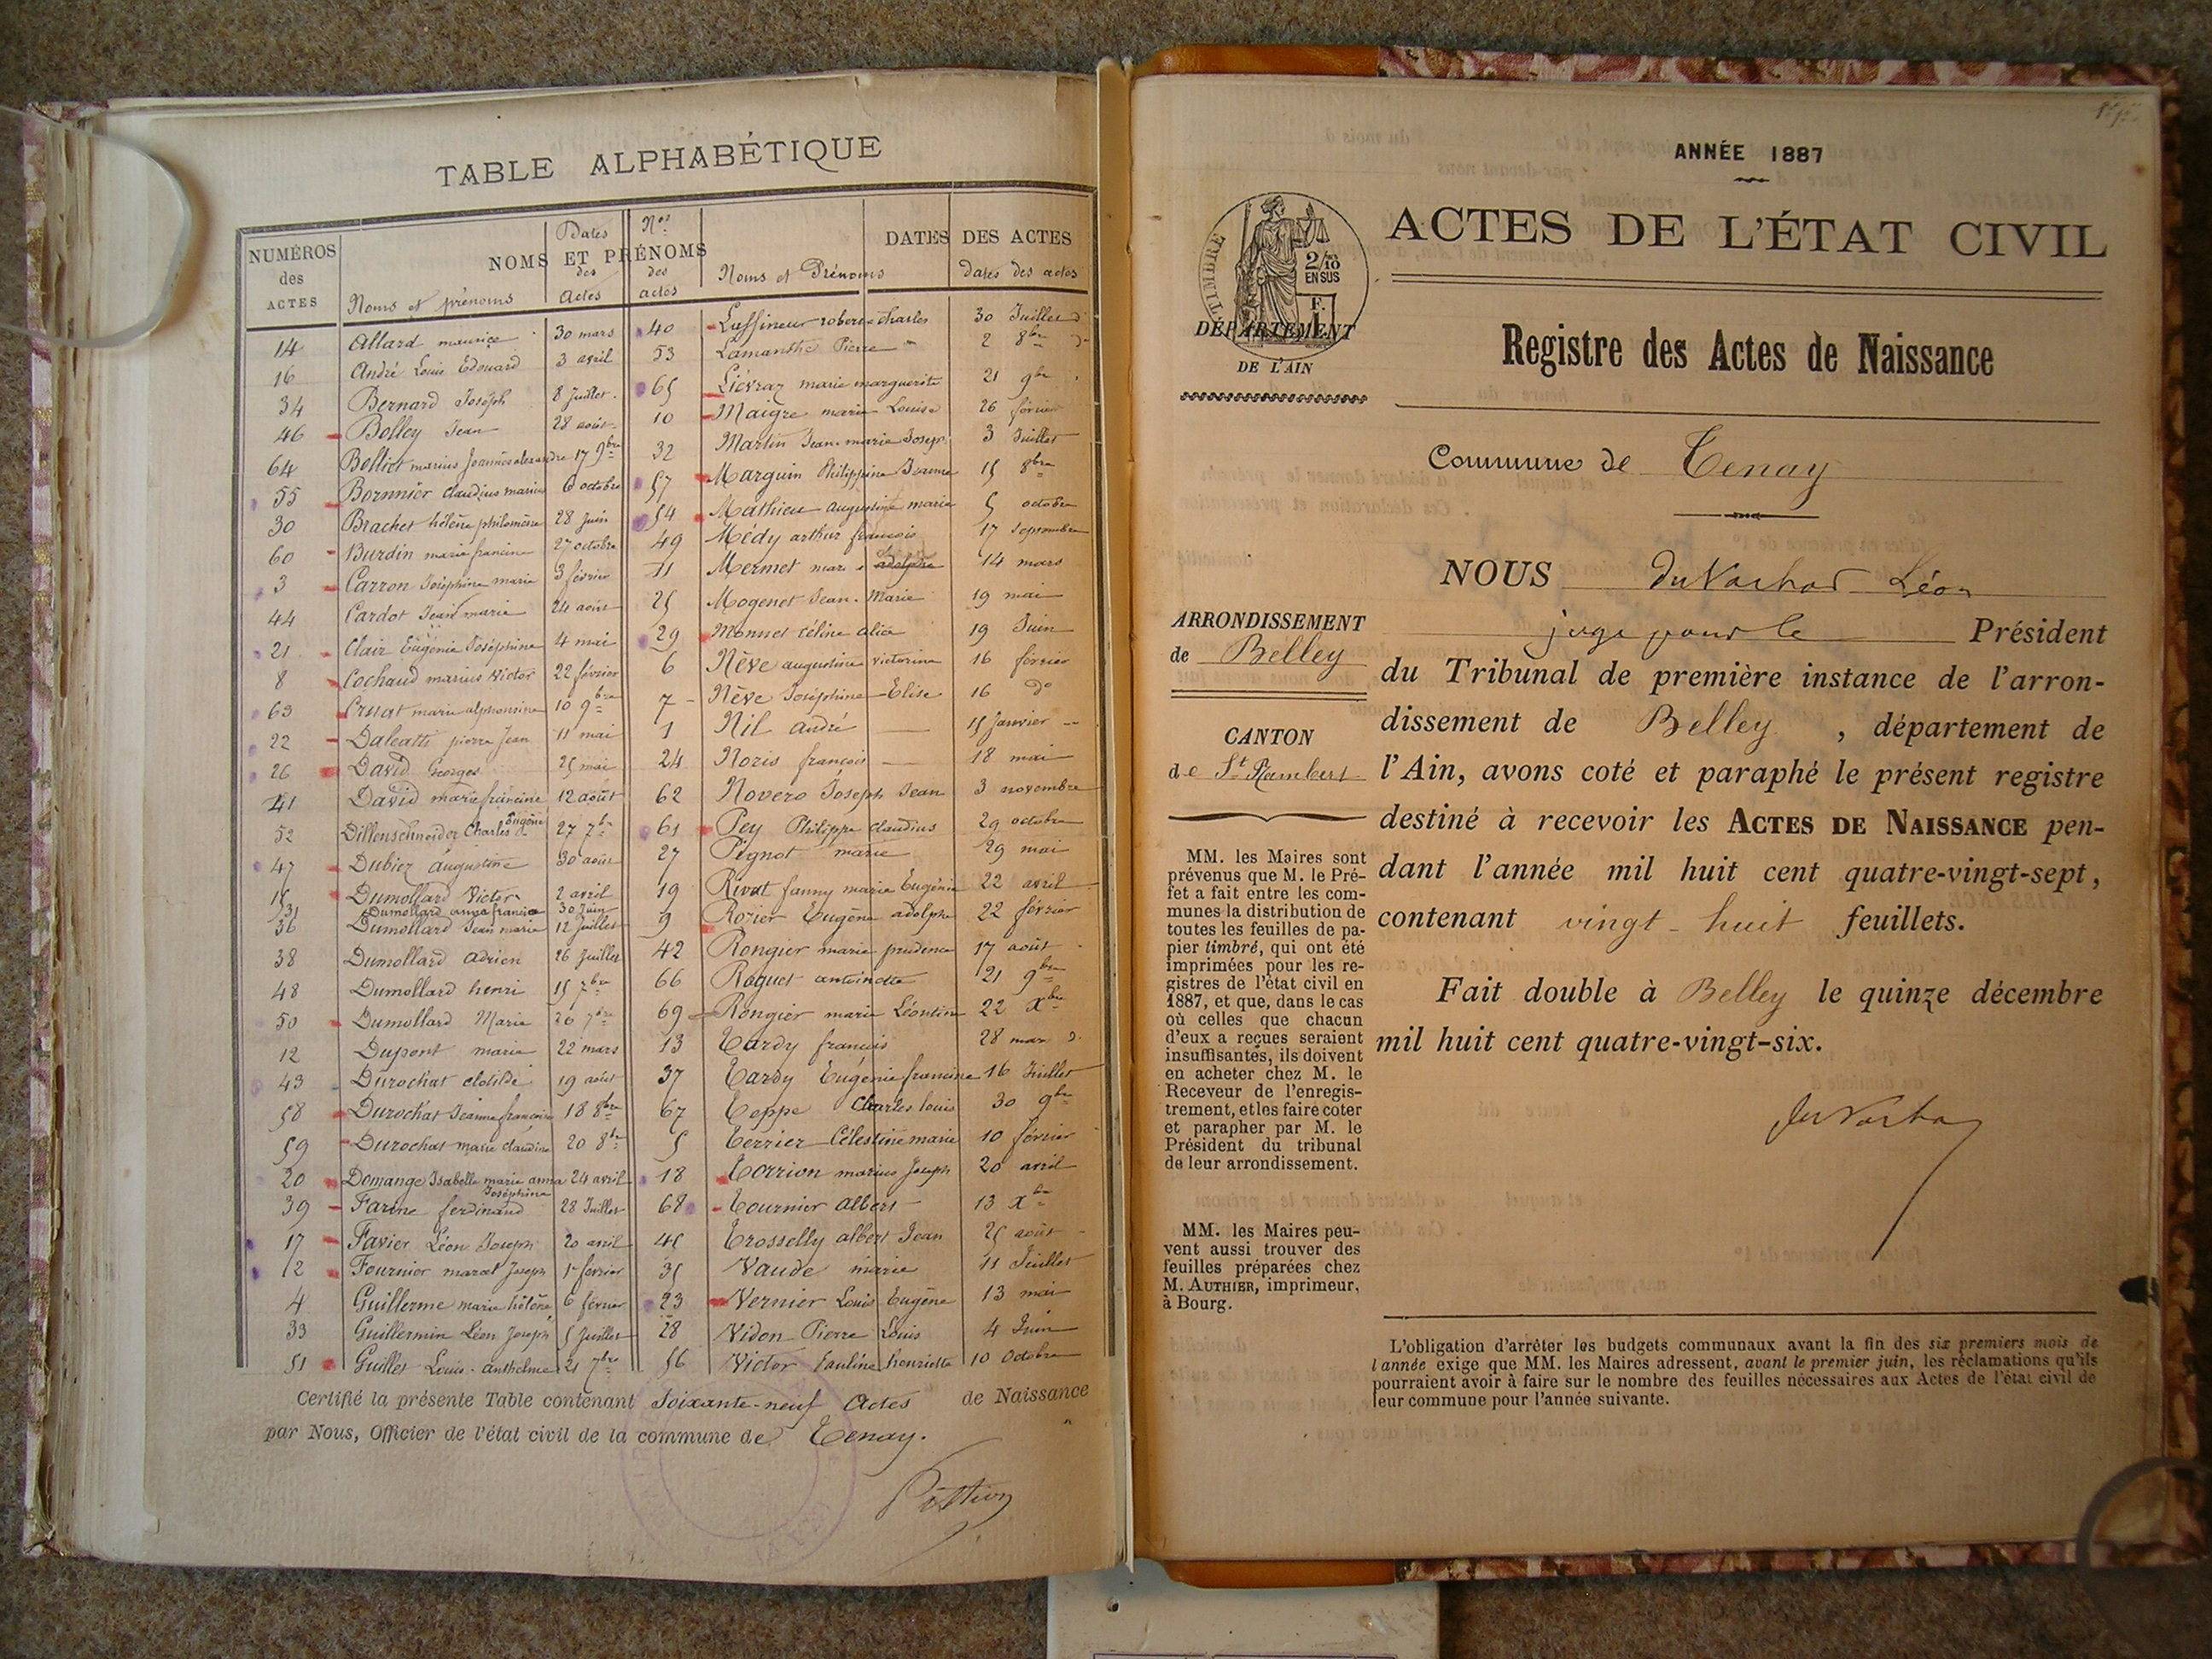 TABLE ALPHABÉTIQUE
NUMÉROS des ACTES
NOMS ET PRÉNOMS
DATES DES ACTES
Noms et prénoms
Dates des Actes
Nos des actes
Noms et Prénoms
dates des actes
14 Allard maurice 30 mars
16 André Louis Edouard 3 avril
34 Bernard Joseph 8 Juillet
46 Bolley Jean 28 août
64 Belliot marius Joannès alexandre 17 9bre
55 Bornnier claudius marius 6 octobre
30 Brachet hélène philomène 28 Juin
60 Burdin marie francine 27 octobre
3 Carron Joséphine marie 3 février
44 Cardot Jean marie 24 août
21 Clair Eugénie Joséphine 4 mai
8 Cochaud marius Victor 22 février
63 marie alphonsine 10 9bre
22 Daleatti pierre Jean 11 mai
26 David Georges 25 mai
41 David marie francine 12 août
52 Dillenschneider Charles Eugène 27 7bre
47 Dubiez augustine 30 août
15 Dumollard Victor 2 avril
31 Dumollard anna francine 30 Juin
36 Dumollard Jean marie 12 Juillet
38 Dumollard Adrien 26 Juillet
48 Dumollard henri 15 7bre
50 Dumollard Marie 20 7bre
12 Dupont marie 22 mars
43 Durochat clotilde 19 août
58 Durochat Jeanne françoise 18 8bre
59 Durochat marie claudine 20 8bre
20 Domange Isabelle marie anna Joséphine 24 avril
39 Farine ferdinand 28 Juillet
17 Favier Léon Joseph 20 avril
2 Fournier marcel Joseph 1er février
4 Guillerme marie hélène 6 février
33 Guillermin Léon Joseph 5 Juillet
51 Guillet Louis anthelme 21 7bre
40 Luffineur robert charles 30 Juillet
53 Lamanthe Pierre 2 8bre
65 Liévraz marie marguerite 21 9bre
10 Maigre marie Louise 26 février
32 Martin Jean-marie Joseph 3 Juillet
57 Marguin Philippine Jeanne 15 8bre
54 Mathieu augustine marie 5 octobre
49 Médy arthur françois 17 Septembre
11 Mermet 14 mars
25 Mogenet Jean-Marie 19 mai
29 Monnet céline alice 19 Juin
6 Nève augustine victorine 16 février
7 Nève Joséphine Elise 16 do
1 Nil André 15 Janvier
24 Noris françois 18 mai
62 Novero Joseph Jean 3 novembre
61 Pey Philippe claudius 29 octobre
27 Pignot marie 29 mai
19 Rivat fanny marie Eugénie 22 avril
9 Rozier Eugène adolphe 22 février
42 Rongier marie prudence 17 août
66 Roguet antoinette 21 9bre
69 Rongier marie Léontine 22 Xbre
13 Tardy francis 28 mars
37 Tardy Eugénie francine 16 Juillet
67 Teppe Charles louis 30 9bre
5 Terrier Célestine marie 10 février
18 Torrion marius Joseph 20 avril
68 Tournier albert 13 Xbre
45 Trosselly albert Jean 25 août
35 Vaude marie 11 Juillet
23 Vernier Louis Eugène 13 mai
28 Vidon Pierre Louis 4 Juin
56 Victor Pauline henriette 10 Octobre
Certifié la présente Table contenant Soixante-neuf Actes de Naissance
par Nous, Officier de l'état civil de la commune de Tenay.
ANNÉE 1887
TIMBRE
2/10 EN SUS
DÉPARTEMENT
DE L'AIN
ACTES DE L'ÉTAT CIVIL
Registre des Actes de Naissance
Commune de Tenay
ARRONDISSEMENT
de Belley
CANTON
de St Rambert
MM. les Maires sont
prévenus que M. le Pré-
fet a fait entre les com-
munes la distribution de
toutes les feuilles de pa-
pier timbré, qui ont été
imprimées pour les re-
gistres de l'état civil en
1887, et que, dans le cas
où celles que chacun
d'eux a reçues seraient
insuffisantes, ils doivent
en acheter chez M. le
Receveur de l'enregis-
trement, et les faire coter
et parapher par M. le
Président du tribunal
de leur arrondissement.
MM. les Maires peu-
vent aussi trouver des
feuilles préparées chez
M. AUTHIER, imprimeur,
à Bourg.
NOUS duVachat Léon
juge pour le Président
du Tribunal de première instance de l'arron-
dissement de Belley, département de
l'Ain, avons coté et paraphé le présent registre
destiné à recevoir les ACTES DE NAISSANCE pen-
dant l'année mil huit cent quatre-vingt-sept,
contenant vingt-huit feuillets.
Fait double à Belley le quinze décembre
mil huit cent quatre-vingt-six.
duVachat
L'obligation d'arrêter les budgets communaux avant la fin des six premiers mois de
l'année exige que MM. les Maires adressent, avant le premier juin, les réclamations qu'ils
pourraient avoir à faire sur le nombre des feuilles nécessaires aux Actes de l'état civil de
leur commune pour l'année suivante.